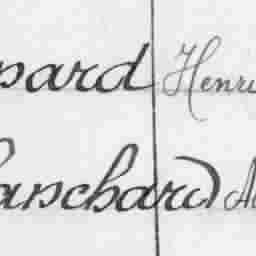 pard Henri
lanchard A